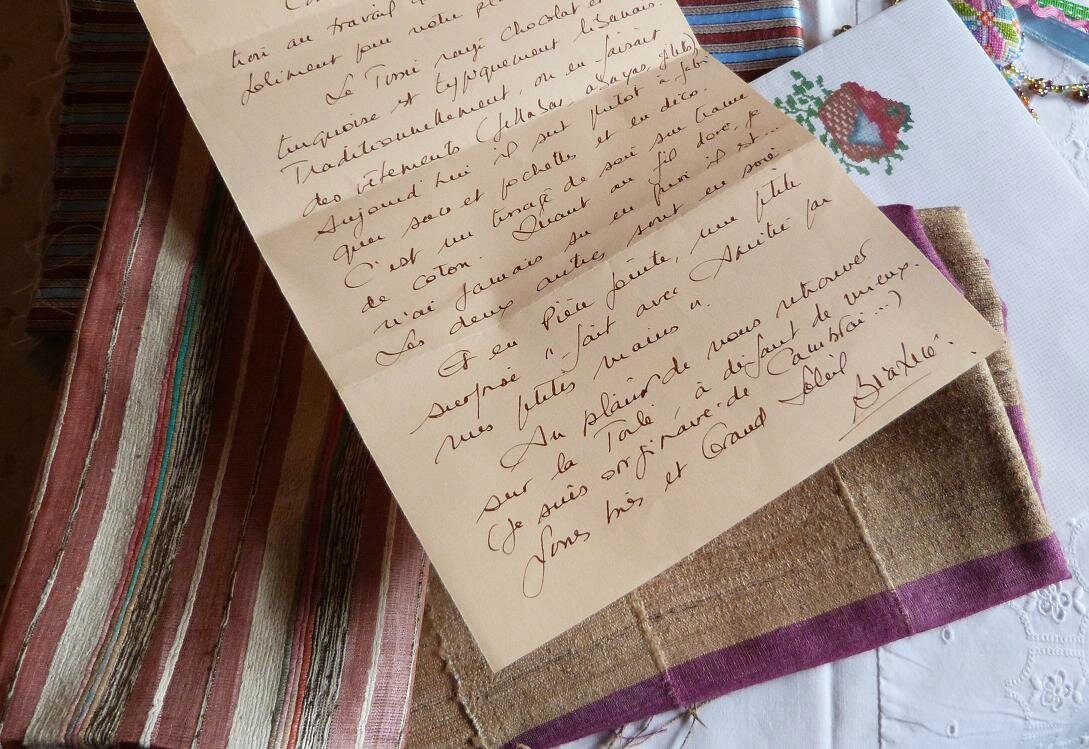 tion au travail
joliment pour notre
Le Tissu rayé chocolat et
turquoise est typiquement libanais.
Traditionnellement, on en faisait
des vêtements (Jellabas, abayas, gilets).
Aujourd'hui il sert plutôt à fabri-
quer sacs et pochettes et en déco.
C'est un tissage de soie sur trame
de coton. Quant au fil doré, je
n'ai jamais su en quoi il est...
Les deux autres sont en soie.
Et en pièce jointe, une petite
surprise "fait avec Amitié par
mes petites mains".
Au plaisir de vous retrouver
sur la Toile, à défaut de mieux.
(Je suis originaire de Cambrai...)
Liens très et Grand Soleil